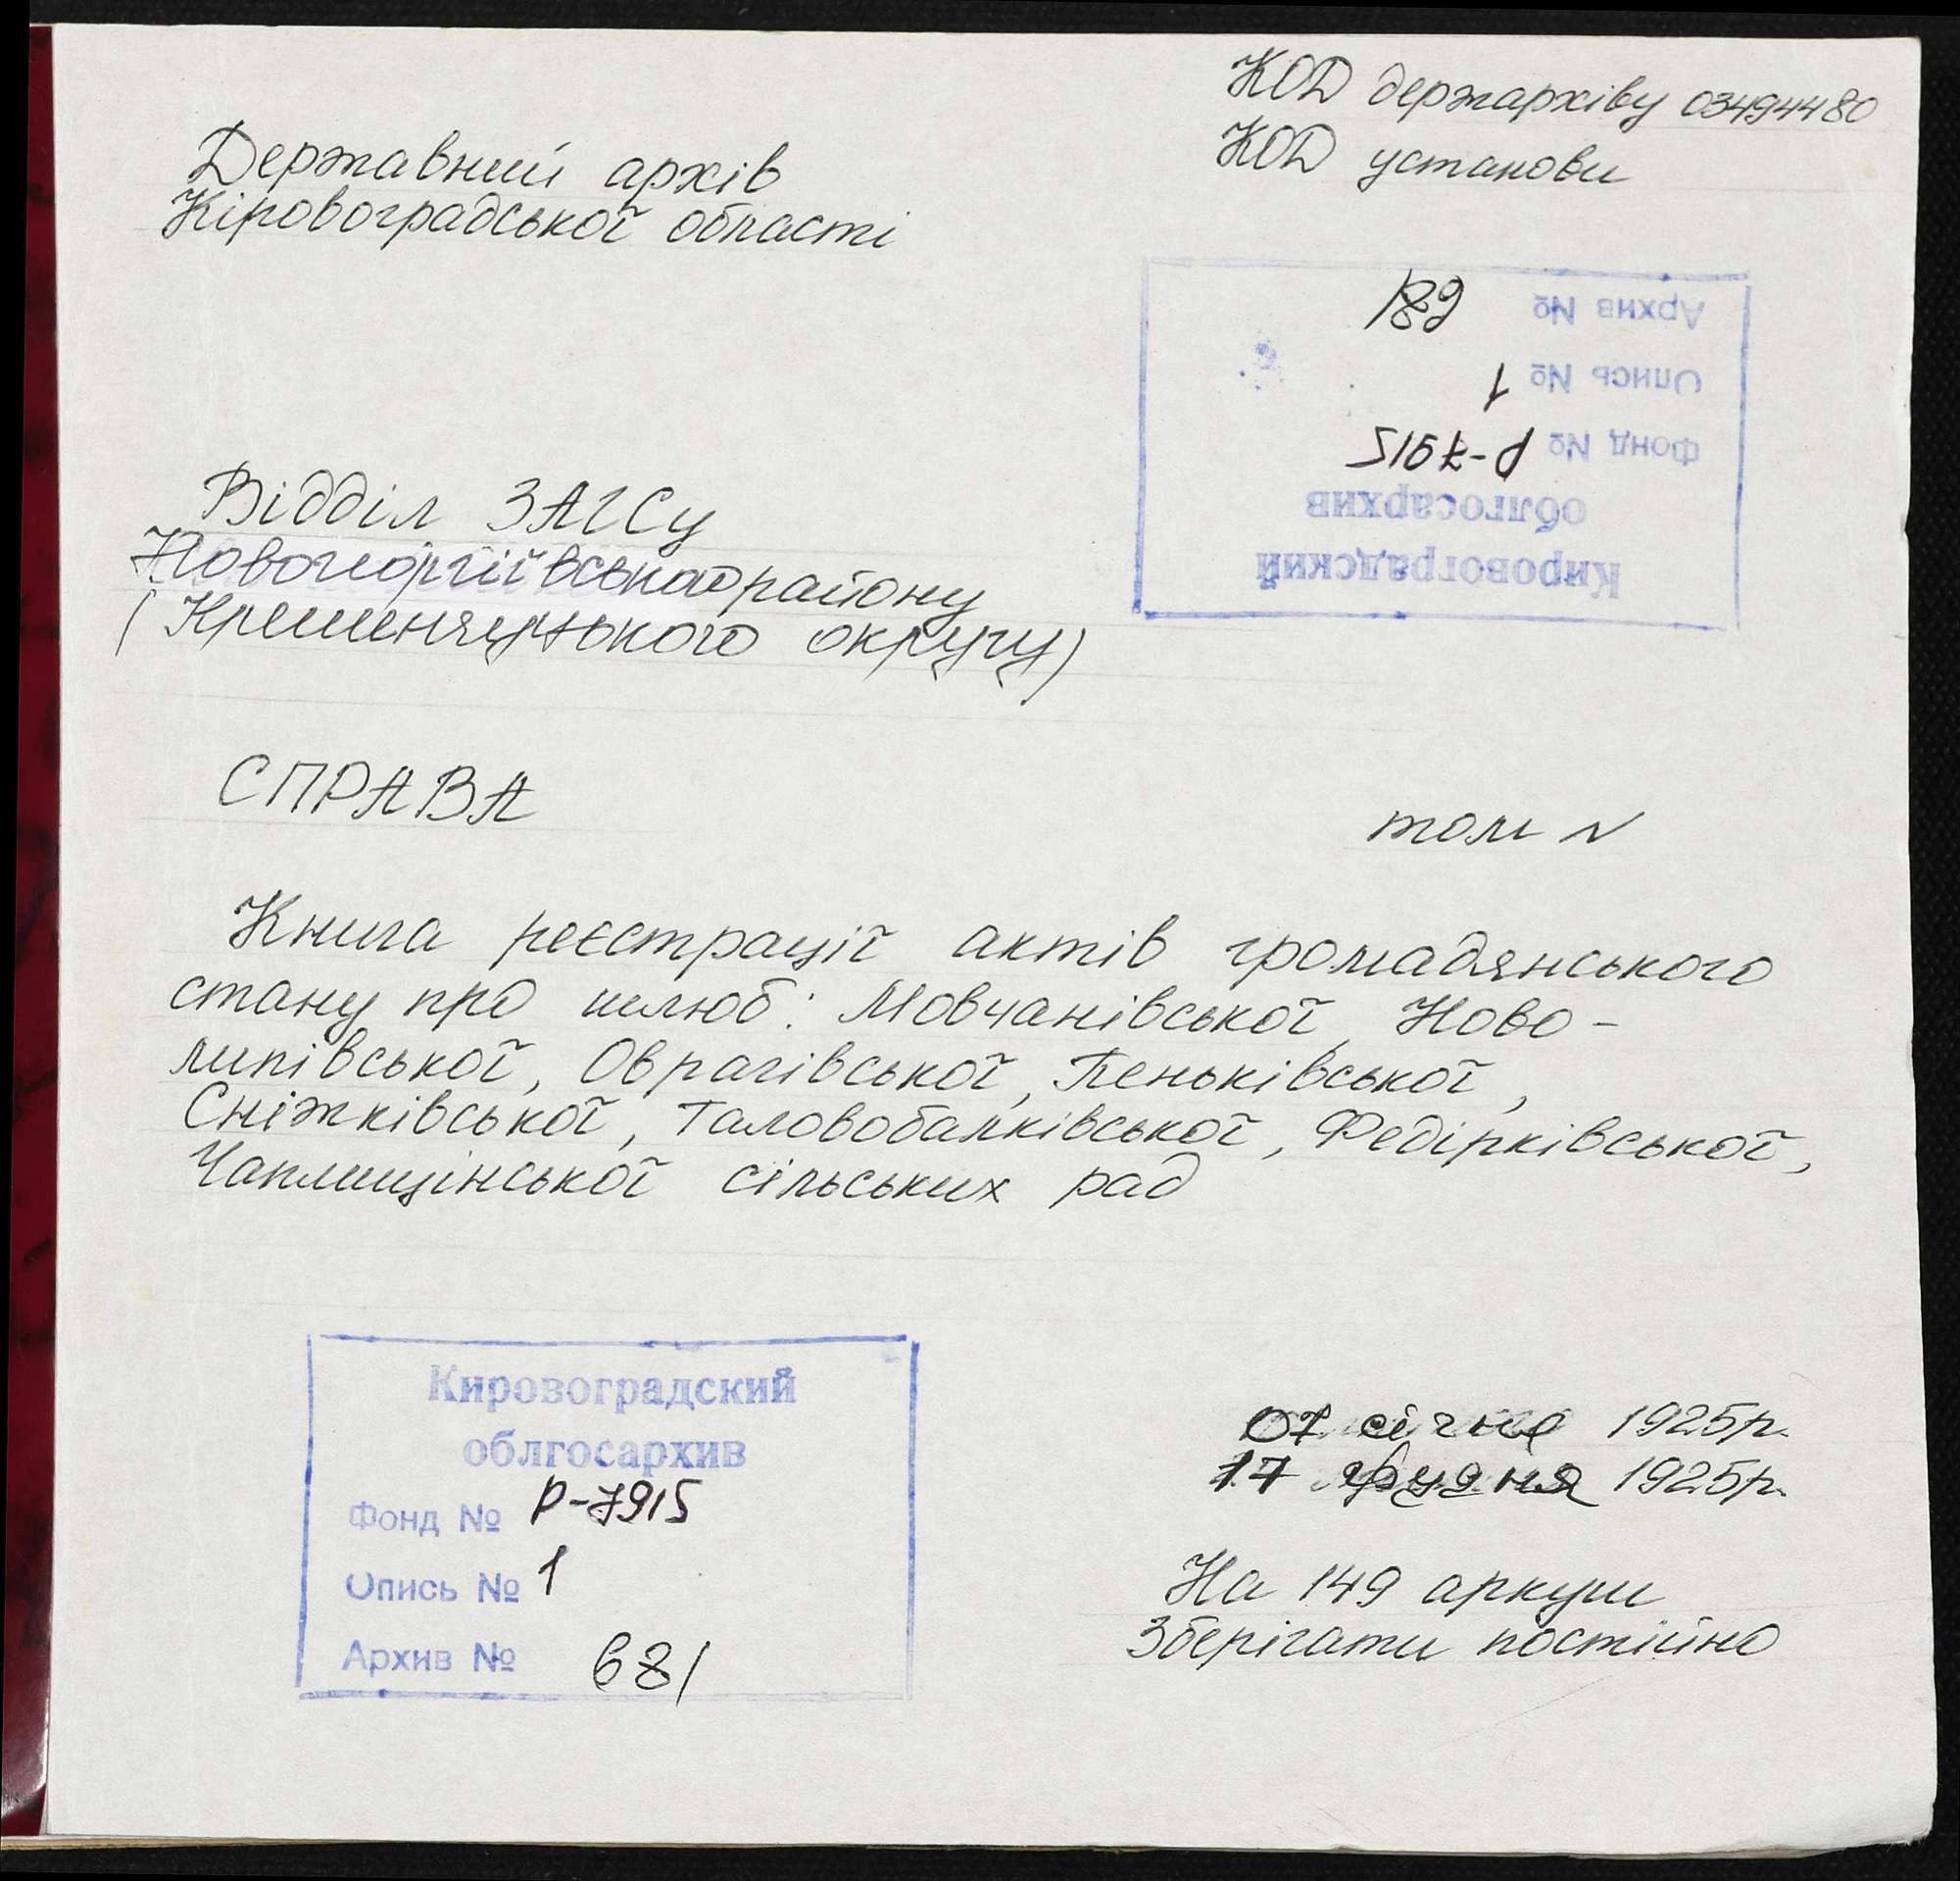 КОД держархіву 03494480
КОД установи
Державний архів
Кіровоградської області
Кировоградский
облгосархив
Фонд № Р-7915
Опись № 1
Архив № 681
Відділ ЗАГСу
Новогеоргіївського району
(Кременчуцького округу)
СПРАВА
том N
Книга реєстрації актів громадянського
стану про шлюб: Мовчанівської, Ново-
липівської, Оврагівської, Пеньківської,
Сніжківської, Таловобалківської, Федірківської,
Чаплищінської сільських рад
Кировоградский
облгосархив
Фонд № Р-7915
Опись № 1
Архив № 681
07 січня 1925р.
17 грудня 1925р.
На 149 аркуш
Зберігати постійно